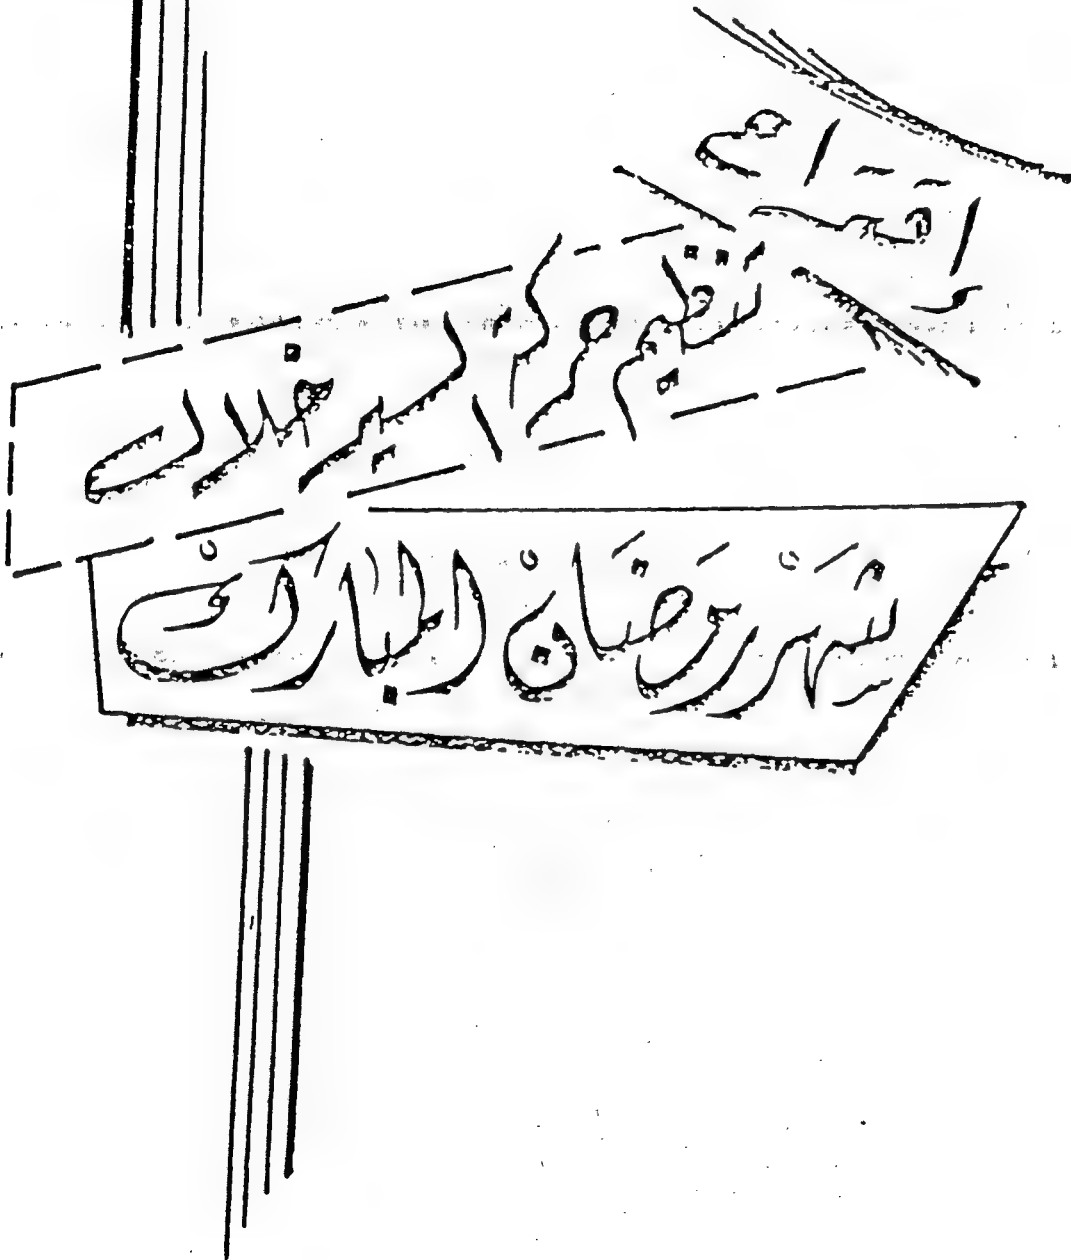 اقتراح
لتنظيم حركة السير خلال
شهر رمضان المبارك